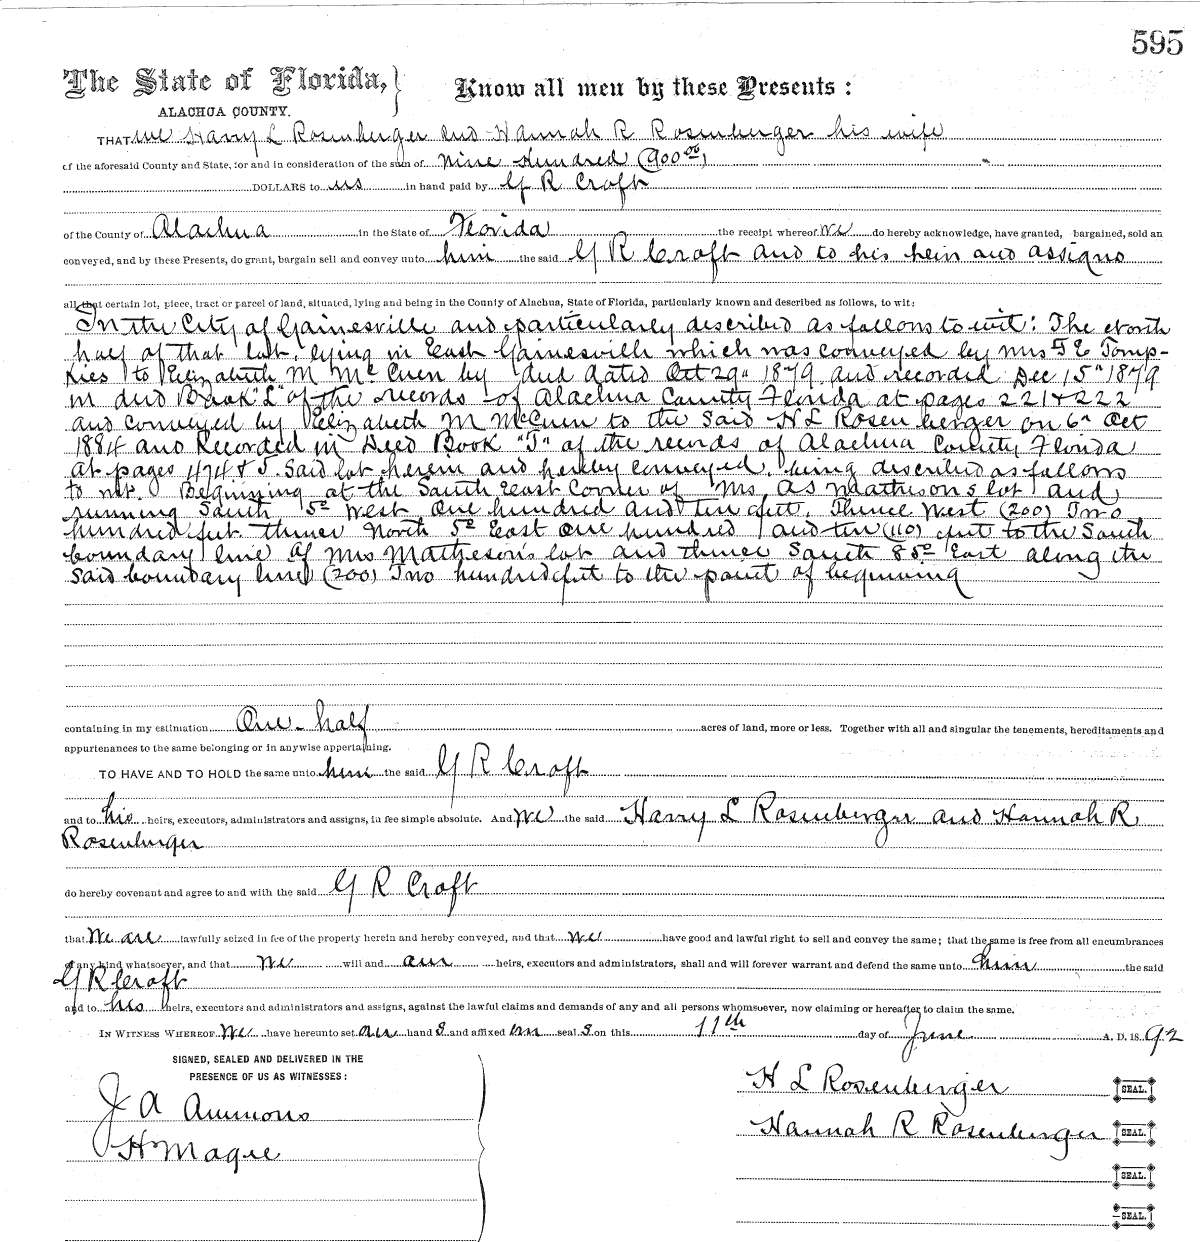 595
The State of Florida,
Know all men by these Presents :
ALACHUA COUNTY.
THAT we Harry L Rosenberger and Hannah R Rosenberger his wife
of the aforesaid County and State, for and in consideration of the sum of Nine Hundred (900.00)
DOLLARS to us in hand paid by G R Croft
of the County of Alachua in the State of Florida the receipt whereof we do hereby acknowledge, have granted, bargained, sold an
conveyed, and by these Presents, do grant, bargain sell and convey unto him the said G R Croft and to his heirs and assigns
all that certain lot, piece, tract or parcel of land, situated, lying and being in the County of Alachua, State of Florida, particularly known and described as follows, to wit:
In the City of Gainesville and particularly described as follows to wit: The North
half of that lot, lying in East Gainesville which was conveyed by Mrs Tomp-
kies to Elizabeth M McCuen by deed dated Oct 29" 1879 and recorded Dec 15" 1879
in deed Book "L" of the records of Alachua County Florida at pages 221 & 222
and conveyed by Elizabeth M McCuen to the said H L Rosenberger on 6" Oct
1884 and Recorded in Deed Book "T" of the records of Alachua County Florida
at pages 474 & 5. Said lot herein and hereby conveyed, being described as follows
to wit. Beginning at the South East Corner of Mrs A S Mathesons lot and
running South 5° West One hundred and ten feet. Thence West (200) Two
hundred feet thence North 5° East One hundred and ten (110) feet to the South
boundary line of Mrs Matheson's lot and thence South 85° East along the
said boundary line (200) Two hundred feet to the point of beginning
containing in my estimation One-half acres of land, more or less. Together with all and singular the tenements, hereditaments and
appurtenances to the same belonging or in anywise appertaining.
TO HAVE AND TO HOLD the same unto him the said G R Croft
and to his heirs, executors, administrators and assigns, in fee simple absolute. And we the said Harry L Rosenberger and Hannah R
Rosenberger
do hereby covenant and agree to and with the said G R Croft
that we are lawfully seized in fee of the property herein and hereby conveyed, and that we have good and lawful right to sell and convey the same; that the same is free from all encumbrances
of any kind whatsoever, and that we will and our heirs, executors and administrators, shall and will forever warrant and defend the same unto him the said
G R Croft
and to his heirs, executors and administrators and assigns, against the lawful claims and demands of any and all persons whomsoever, now claiming or hereafter to claim the same.
IN WITNESS WHEREOF we have hereunto set our hand s and affixed our seal s on this 11th day of June A. D. 18 92
SIGNED, SEALED AND DELIVERED IN THE
PRESENCE OF US AS WITNESSES :
J A Ammons
H L Rosenberger SEAL.
Hannah R Rosenberger SEAL.
H Magie
SEAL.
SEAL.